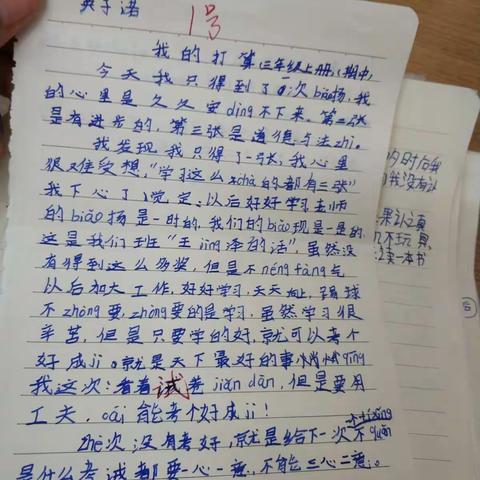 1号
我的打算(三年级上册,期中)
今天我只得到了一次biǎo扬,我
的心里是久久安ding不下来。第二张
是有进步的,第三张是道德与法zhì。
我发现我只得了一张,我心里
很难受想,"学习这么chà的都有三张"
我下心了,觉定,以后好好学习,老师
的biǎo扬是一时的,我们的biǎo现是一是的,
这是我们班"王jīng泽的话",虽然没
有得到这么多奖,但是不néng fàng气
以后加大工作,好好学习,天天向上,踢球
不zhòng要,zhòng要的是学习,虽然学习很
辛苦,但是只要学的好,就可以考个
好成jì。就是天下最好的事情
我这次:看着试卷jiǎn dān,但是要用
工夫,cái能考个好成jì!
zhè次没有考好,就是给下一次不
是什么考试都要一心一意,不能三心二意。
的时后我
我没有认
果认真
几不玩具
卖一本书